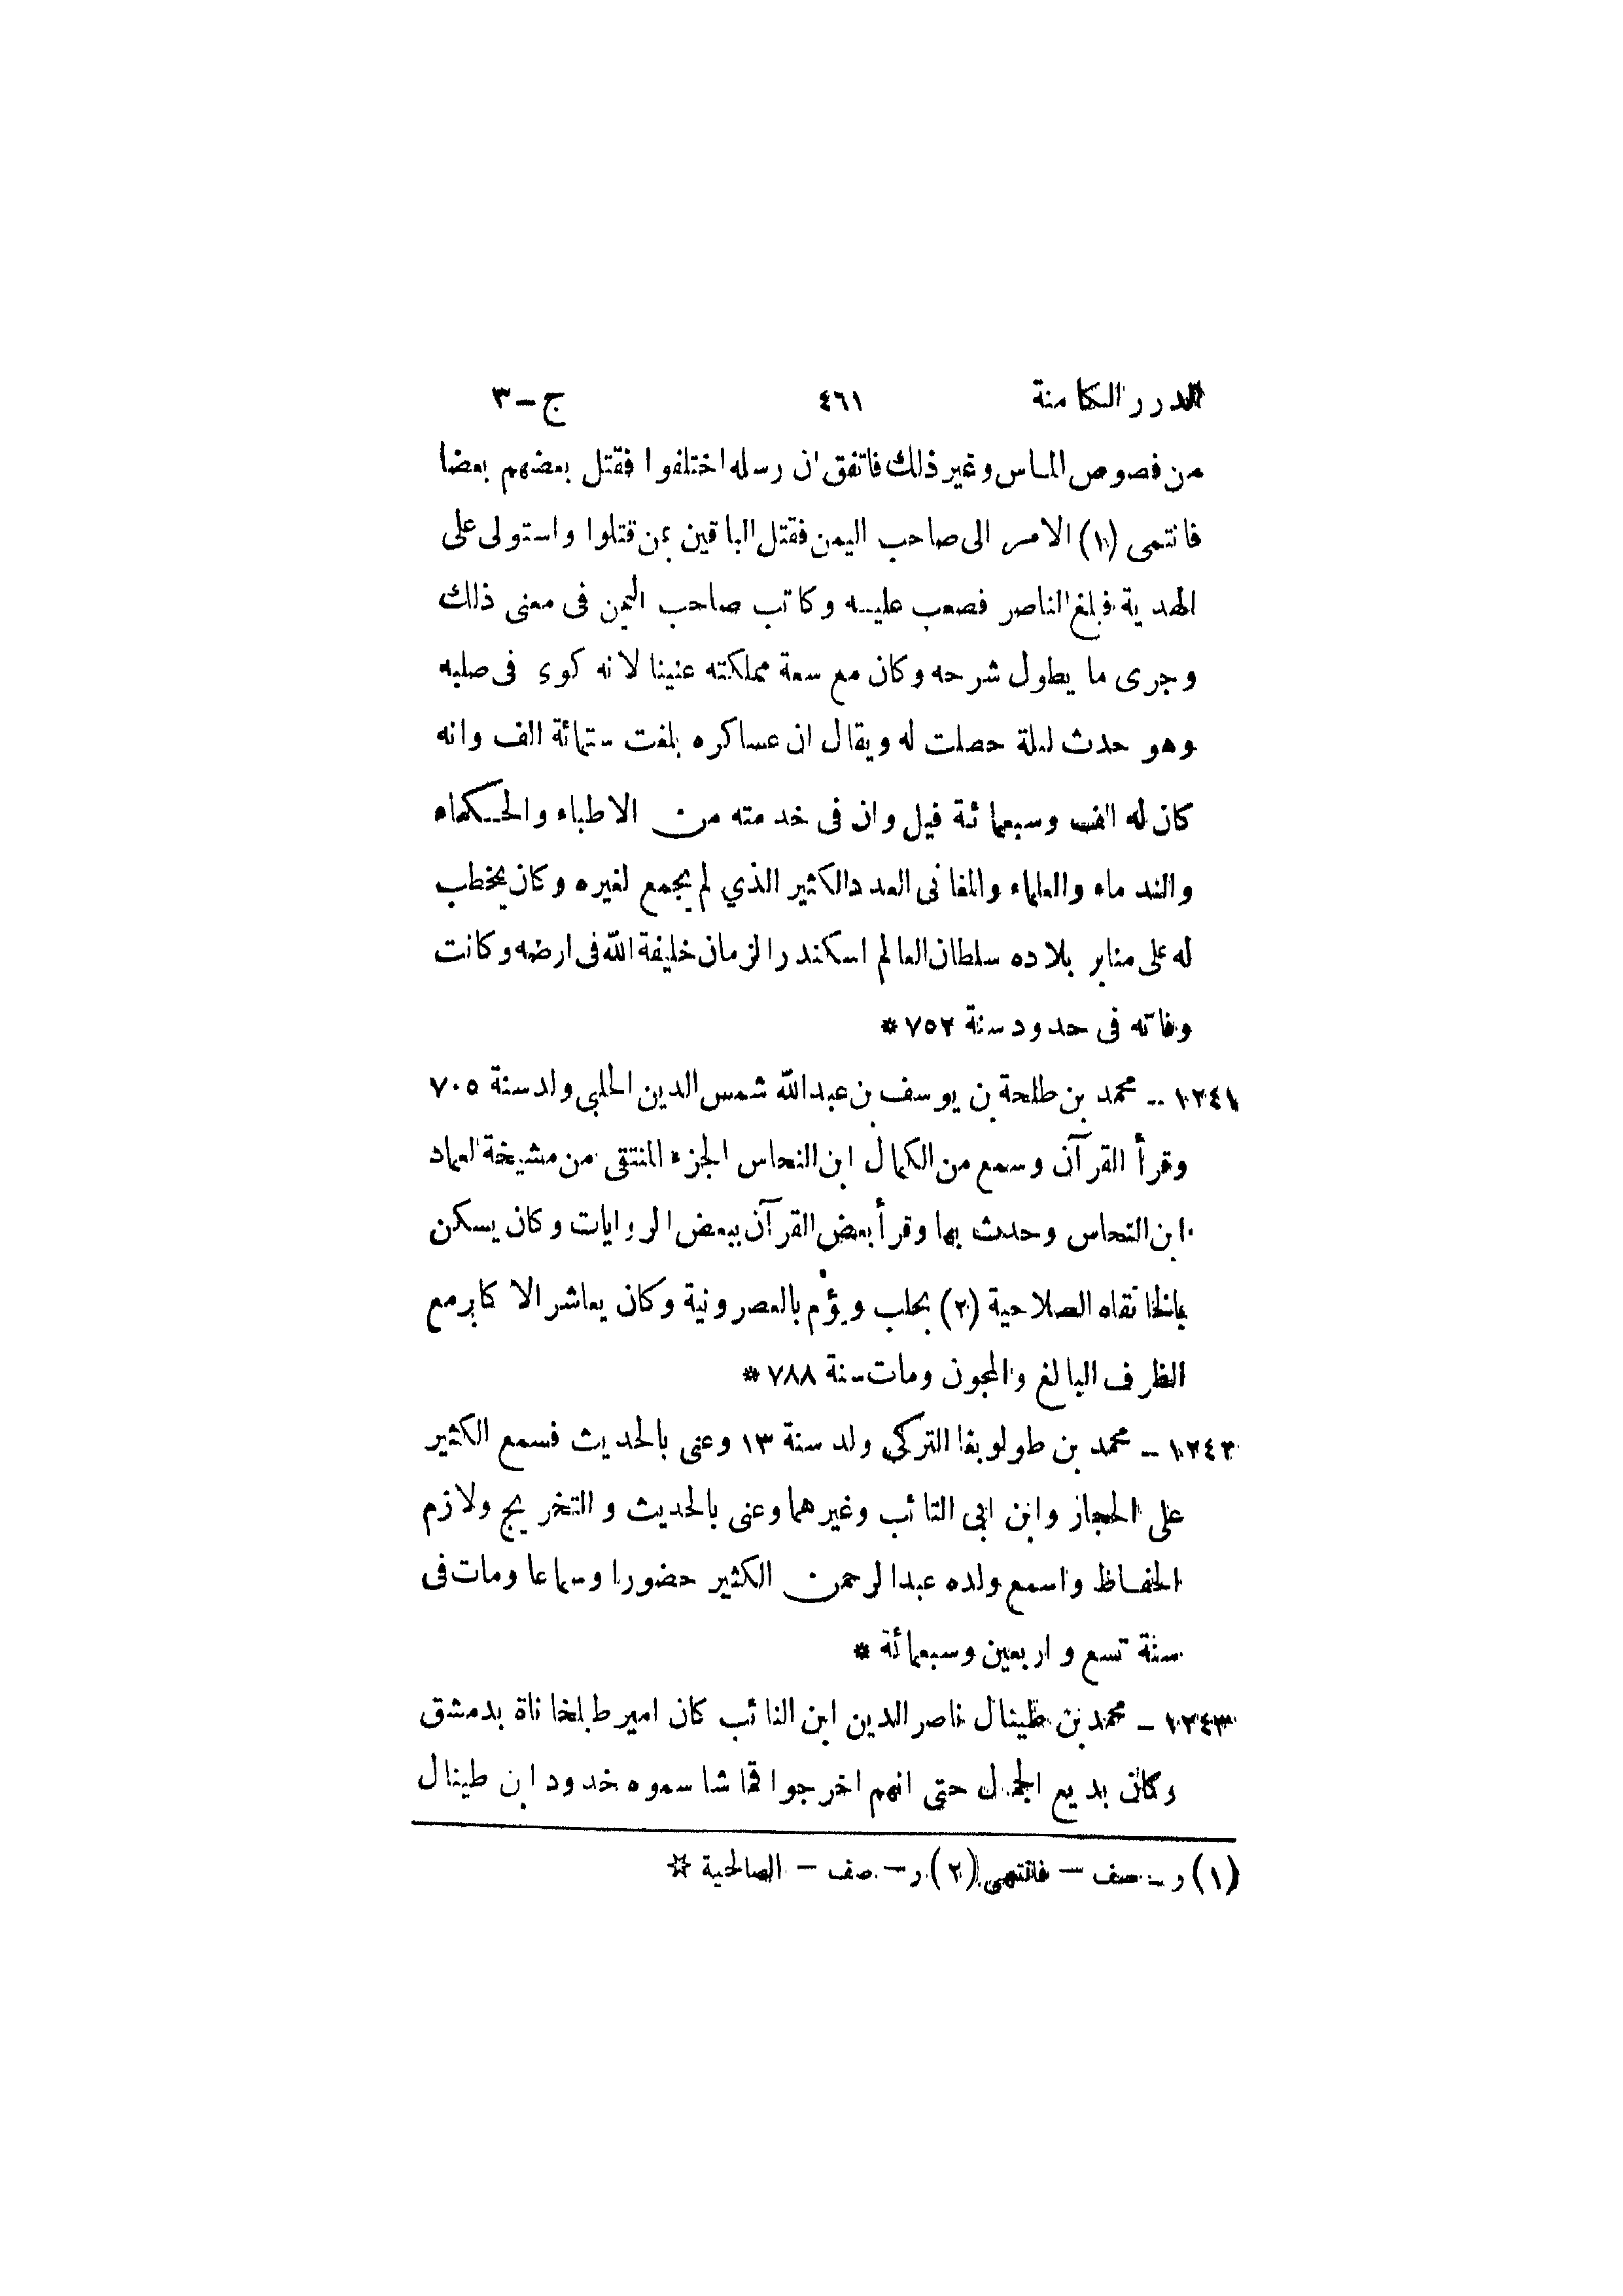 الدرر الكامنة ٤٦١ ج-٣
من فصوص الماس وغير ذلك فاتفق ان رسله اختلفوا فقتل بعضهم بعضا
فانتمى (١) الامر الى صاحب اليمن فقتل الباقين بمن قتلوا واستولى على
الهدية فبلغ الناصر فصعب عليه وكاتب صاحب اليمن فى معنى ذلك
وجرى ما يطول شرحه وكان مع سعة مملكته عنينا لانه كوى فى صلبه
وهو حدث لعلة حصلت له ويقال ان عساكره بلغت ستمائة الف وانه
كان له الف وسبعمائة فيل وان فى خدمته من الاطباء والحكماء
والندماء والعلماء والمغانى العدد الكثير الذي لم يجمع لغيره وكان يخطب
له على منابر بلاده سلطان العالم اسكندر الزمان خليفة الله فى ارضه وكانت
وفاته فى حدود سنة ٧٥٢ *
١٢٤١ - محمد بن طلحة بن يوسف بن عبدالله شمس الدين الحلبى ولد سنة ٧٠٥
وقرأ القرآن وسمع من الكمال ابن النحاس الجزء المنتقى من مشيخة العماد
ابن النحاس وحدث بها وقرأ بعض القرآن ببعض الروايات وكان يسكن
بالخانقاه الصلاحية (٢) بحلب ويؤم بالعصرونية وكان يعاشر الاكابر مع
الظرف البالغ والمجون ومات سنة ٧٨٨ *
١٢٤٢ - محمد بن طولوبغا التركي ولد سنة ١٣ وعنى بالحديث فسمع الكثير
على الحجاز وابن ابى التائب وغيرهما وعنى بالحديث والتخريج ولازم
الحفاظ واسمع ولده عبدالرحمن الكثير حضورا وسماعا ومات فى
سنة تسع واربعين وسبعمائة *
١٢٤٣ - محمد بن طينال ناصر الدين ابن النائب كان امير طبلخاناة بدمشق
وكان بديع الجمال حتى انهم اخرجوا قماشا سموه خدود ابن طينال
(١) ر - صف - فانتهى (٢) ر - صف - الصالحية ☆